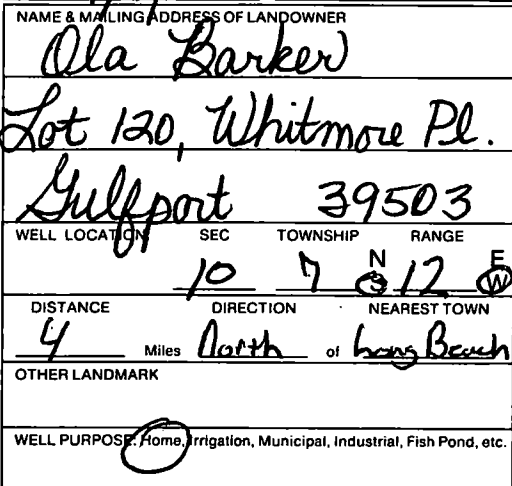 NAME & MAILING ADDRESS OF LANDOWNER
Ola Barker
Lot 120, Whitmore Pl.
Gulfport 39503
WELL LOCATION SEC TOWNSHIP RANGE
N E
10 7 S 12 W
DISTANCE DIRECTION NEAREST TOWN
4 Miles North of Long Beach
OTHER LANDMARK
WELL PURPOSE: Home, Irrigation, Municipal, Industrial, Fish Pond, etc.